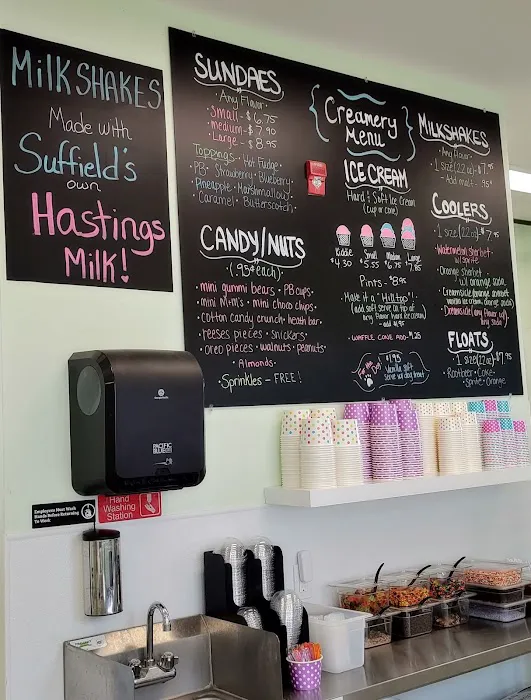 MilKSHAKES
Made with
Suffield's
own
Hastings
Milk!
SUNDAES
Any Flavor
Small - $6.75
medium - $7.90
Large - $8.95
Toppings - Hot Fudge
PB Strawberry Blueberry
Pineapple Marshmallow
Caramel Butterscotch
CANDY/NUTS
(.95¢ each)
mini gummi bears PB cups
mini m+m's mini choco chips
cotton candy crunch heath bar
reeses pieces snickers
oreo pieces walnuts peanuts
Almonds
Sprinkles - FREE!
Creamery
Menu
ICE CREAM
Hard + Soft Ice Cream
(cup or cone)
Kiddie Small Medium Large
$4.30 5.55 $6.75 7.85
Pints - $8.95
Make it a "Hilltop"!
(add soft serve on top of
any flavor hard ice cream)
WAFFLE CONE ADD
For the Dog $1.95
Vanilla Soft
Serve w/ dog treat
MILKSHAKES
Any Flavor
1 size (22oz)
Add malt .95¢
COOLERS
1 size (22oz)
Watermelon Sherbet
w/ sprite
Orange Sherbet
w/ orange soda
Creamsicle (orange sherbet
vanilla ice cream, orange soda)
Dreamsicle (any flavor w/
any soda)
FLOATS
1 size (22oz)
Rootbeer Coke
Sprite Orange
PACIFIC
BLUE
Employees Must Wash
Hands Before Returning
To Work
Hand
Washing
Station